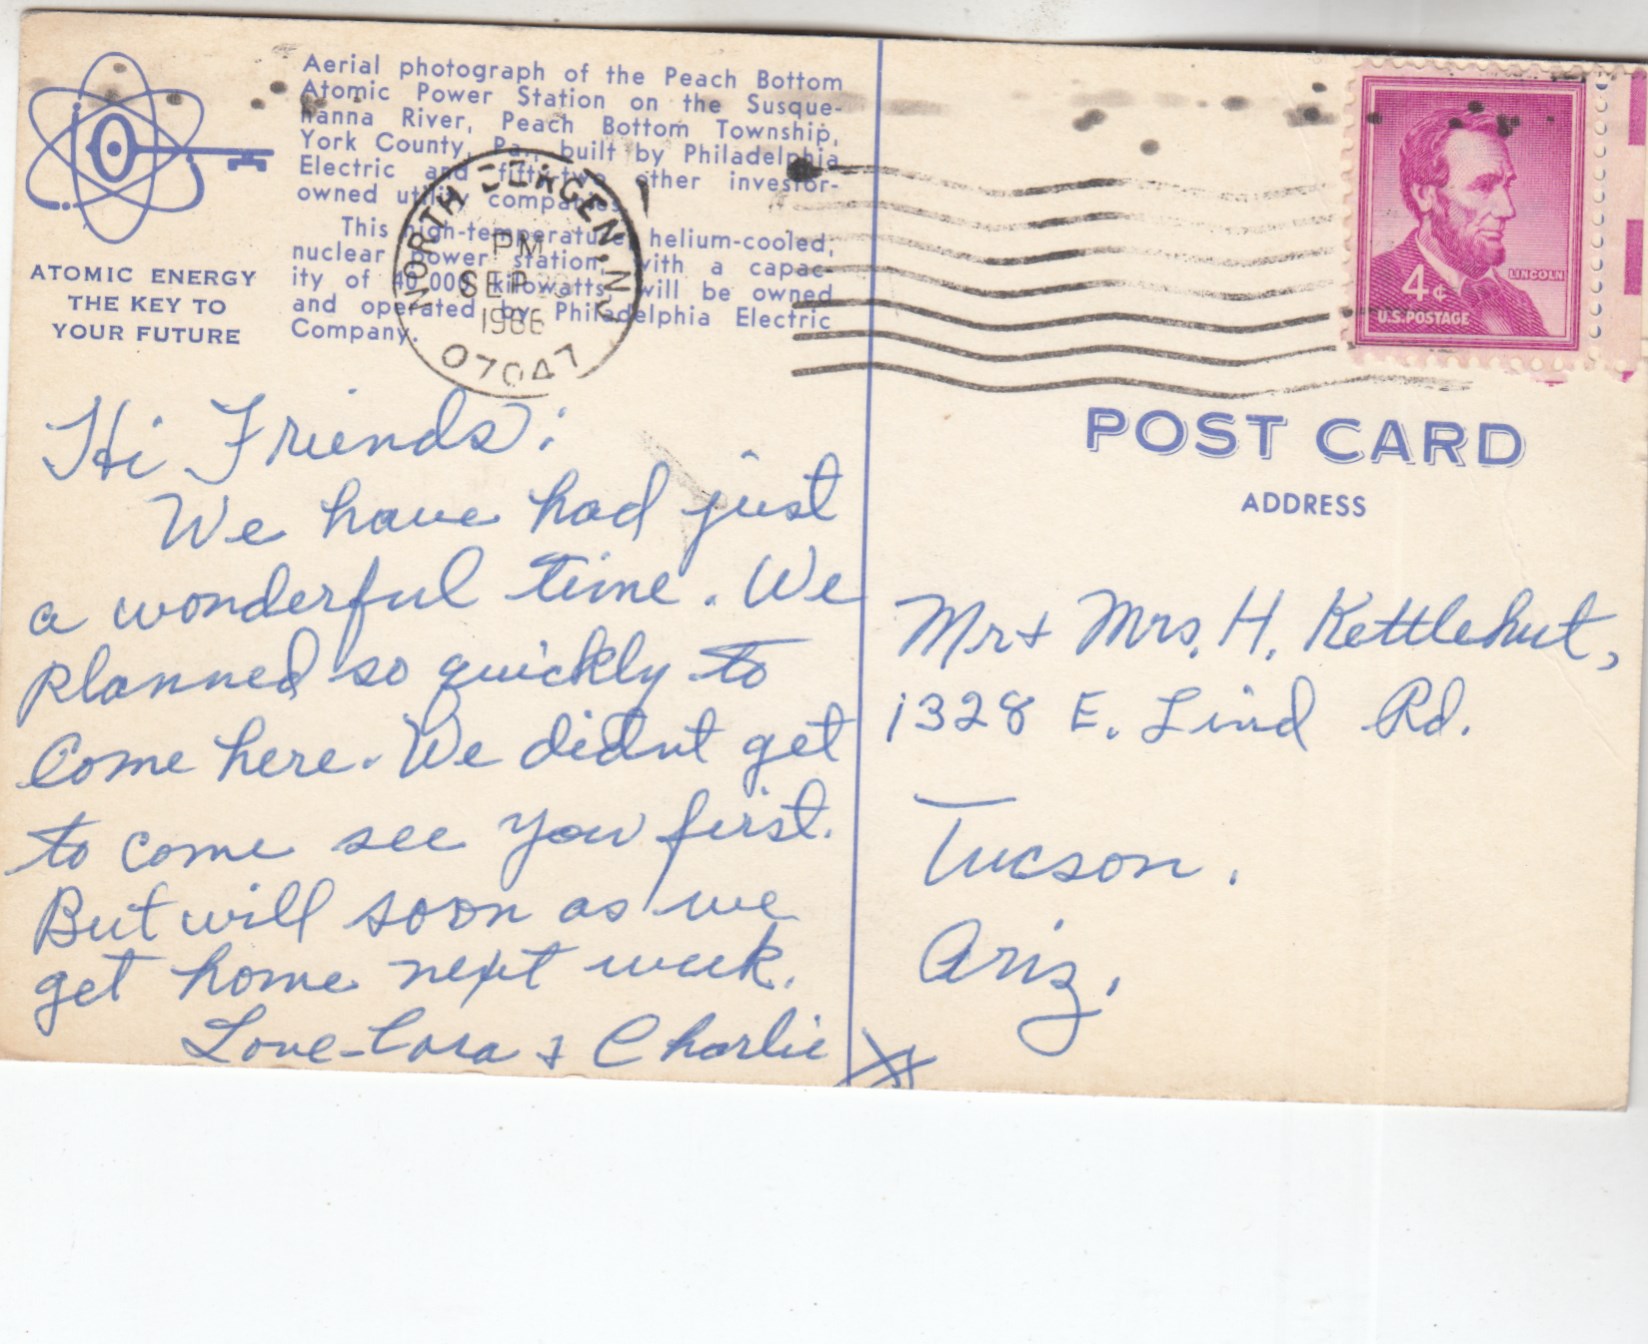 Aerial photograph of the Peach Bottom
Atomic Power Station on the Susque-
hanna River, Peach Bottom Township,
York County, Pa., built by Philadelphia
Electric and fifty-two other investor-
owned utility companies.
This high-temperature, helium-cooled,
nuclear power station, with a capac-
ity of 40,000 kilowatts, will be owned
and operated by Philadelphia Electric
Company.
ATOMIC ENERGY
THE KEY TO
YOUR FUTURE
NORTH BERGEN, NJ
PM
SEP
07047
4¢
LINCOLN
U.S. POSTAGE
Hi Friends:
We have had just
a wonderful time. We
planned so quickly to
Come here. We didnt get
to come see you first.
But will soon as we
get home next week.
Love-Cora & Charlie
POST CARD
ADDRESS
Mr + Mrs. H. Kettlehut,
1328 E. Lind Rd.
Tucson.
Ariz.